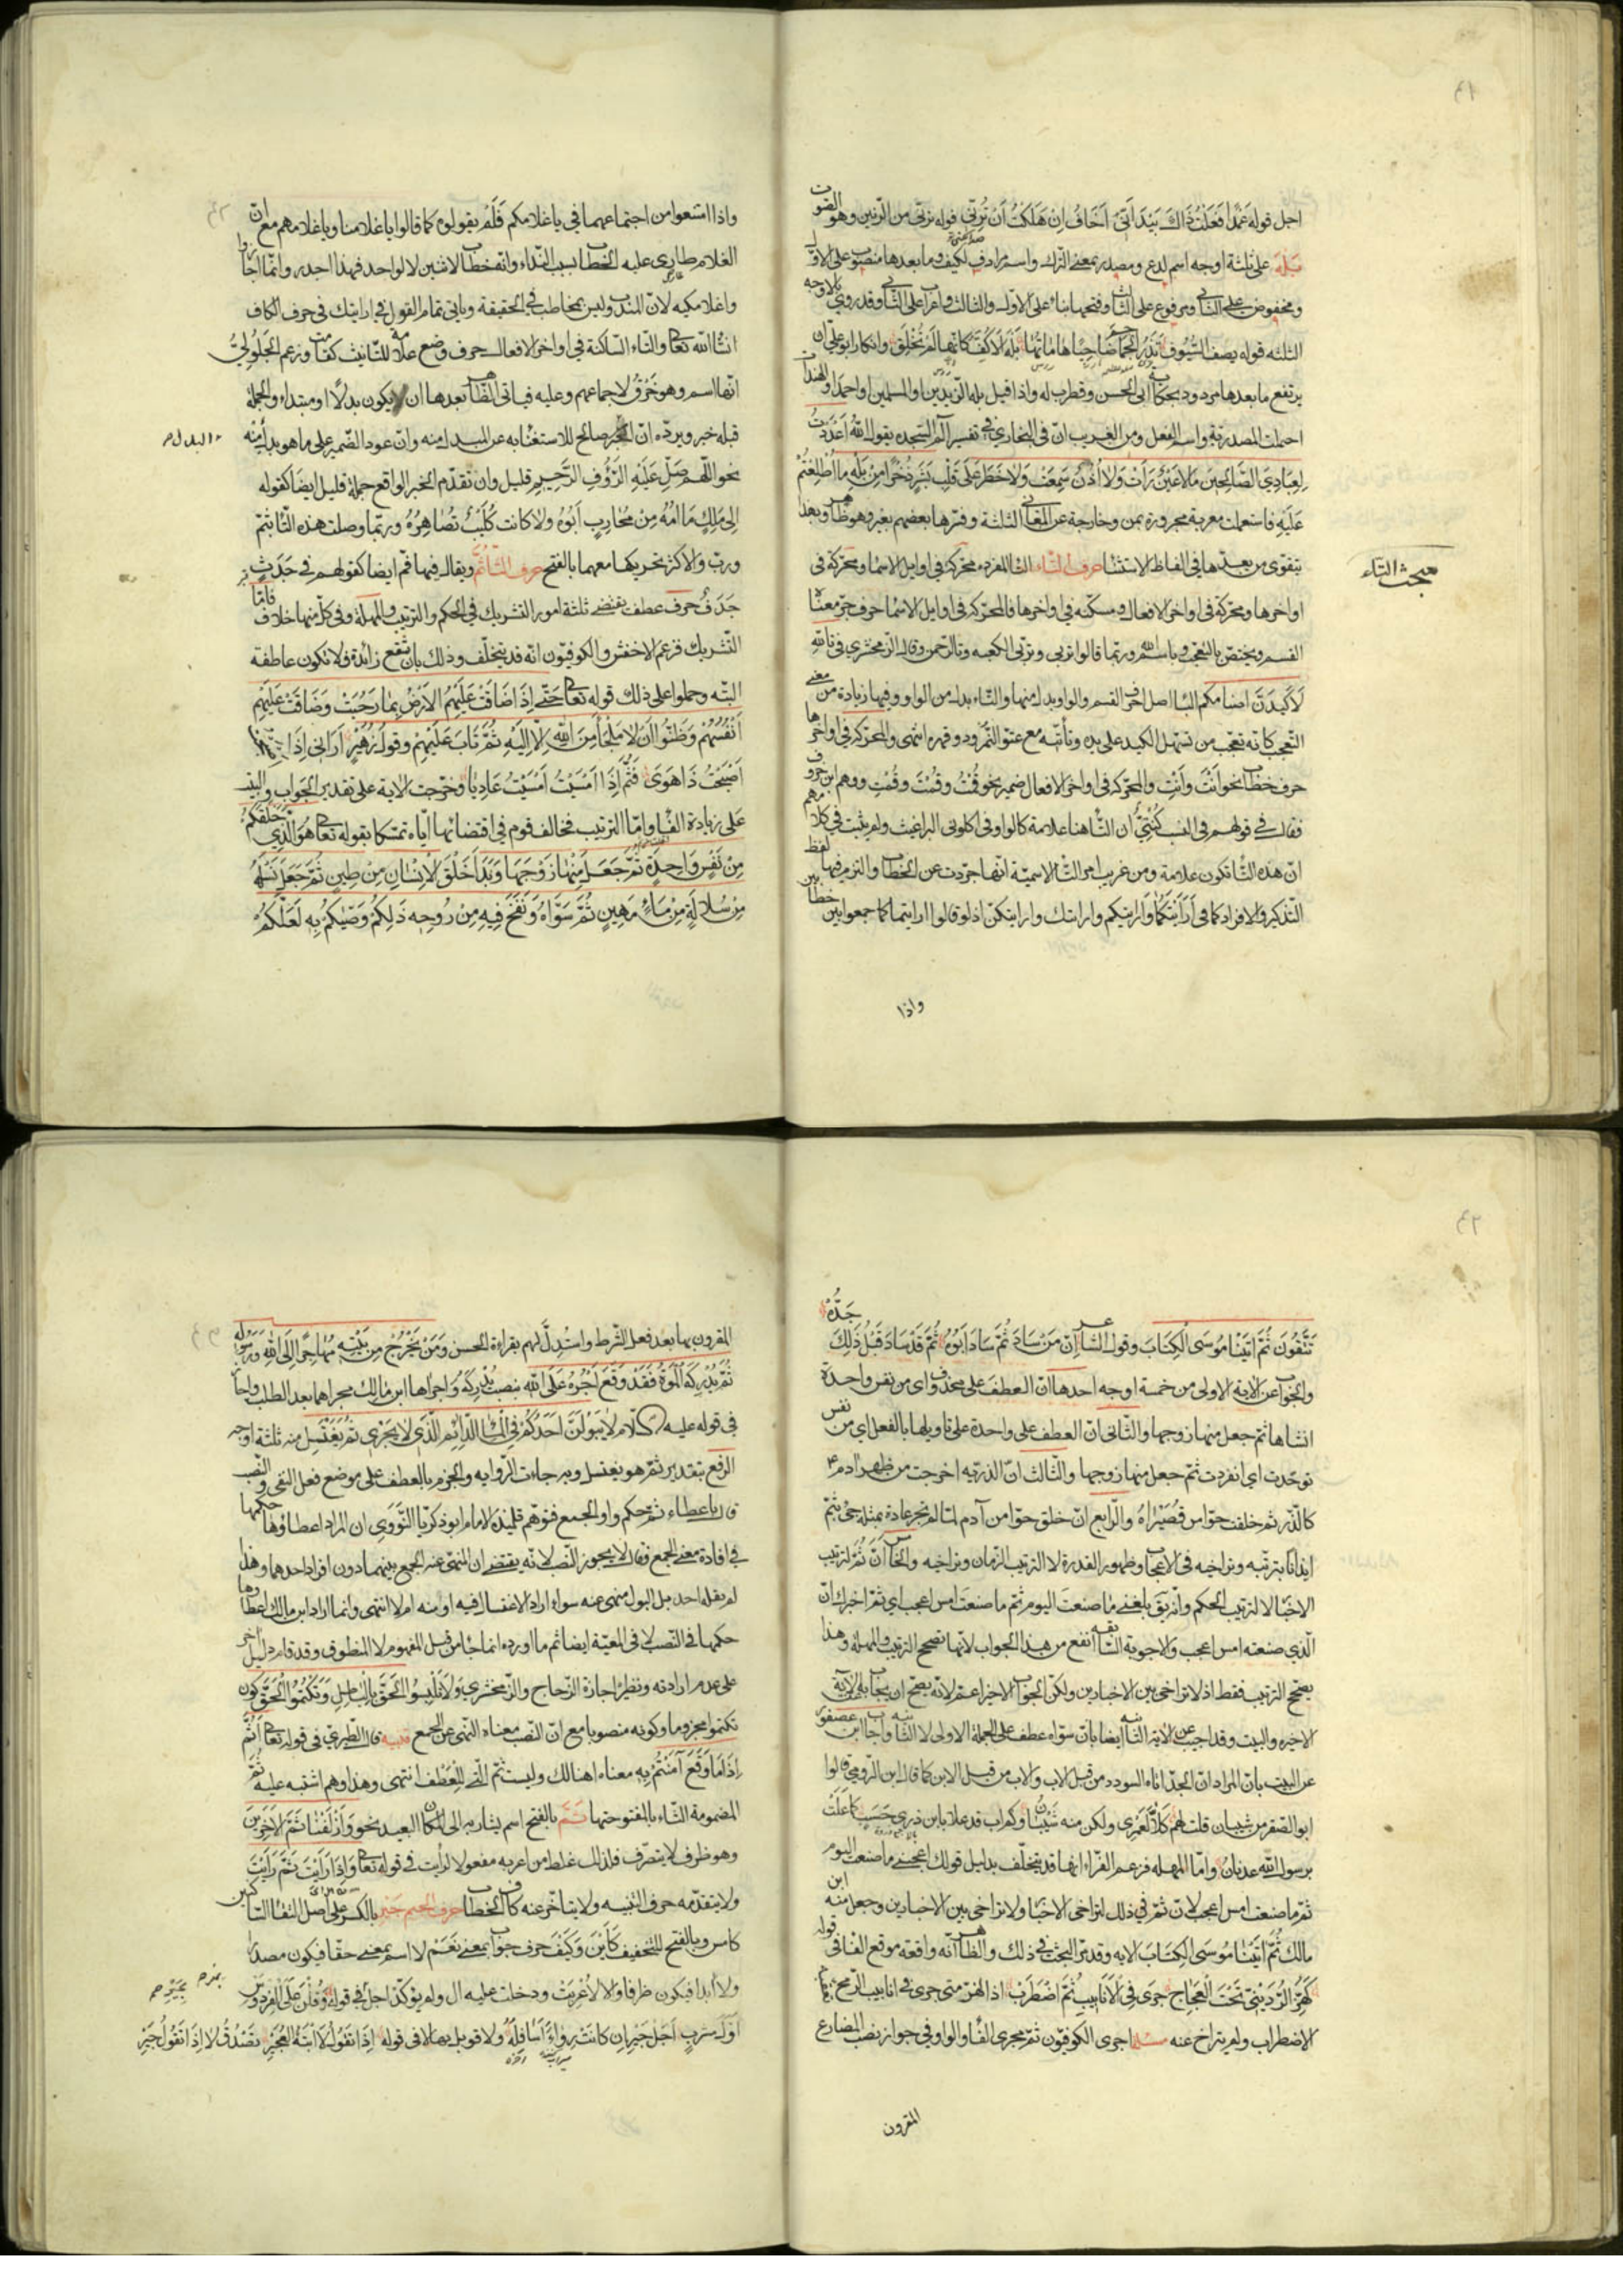 اجل قوله عَمْدًا فَعَلْتُ ذَاكَ بَيْدَ اَنّي اَخَافُ اِنْ هَلَكْتُ اَنْ تُرِنّي قوله ترنّي من الرّنين وهو الصّوت
بَلْهَ على ثلثة اوجه اسم لدع ومصدر بمعنى الترك واسم مرادف لكيف وما بعدها منصوب على الاوّل
ومخفوض على الثاني ومرفوع على الثالث وفتحها بناء على الاوّل والثالث واعراب على الثاني وقد روي بالاوجه
الثلثه قوله يصف السّيُوف تَذَرُ الجَمَاجِمَ ضَاحِيًا هَامَاتُهَا بَلْهَ الاَكُفَّ كَاَنّها لَمْ تُخْلَقِ وانكار ابو علي ان
يرتفع ما بعدها مردود بحكاية ابى الحسن وقطرب له واذا قيل بله الزّيدين او المسلمين او احمد او الهندات
احتملت المصدرية واسم الفعل ومن الغريب انّ فى البخاري في تفسير آلم السّجدة يقول اللهُ اَعْدَدْتُ
لِعِبَادِيَ الصَّالِحِينَ مَا لَا عَيْنٌ رَأَتْ وَلَا اُذُنٌ سَمِعَتْ وَلَا خَطَرَ عَلَى قَلْبِ بَشَرٍ ذُخْرًا مِنْ بَلْهِ مَا اُطْلِعْتُمْ
عَلَيْهِ فاستعملت معربة مجرورة بمن وخارجة عن المعاني الثلثة وفسّرها بعضهم بغير وهو ظاهر وبهذا
يتقوى من يعدّها في الفاظ الاستثناء حرف التّاء التاء المفردة محرّكة في اوايل الاسماء ومحرّكة فى
مبحث التاء
اواخرها ومحرّكة فى اواخر الافعال ومسكّنة في اواخرها فالمحرّكة فى اوايل الاسما حرف جرّ معناه
القسم ويختصّ بالتعجّب وباسم الله وربّما قالوا تربّي وتربّ الكعبه وتالرّحمن وقال الزّمخشري في تاللهِ
لَاَكِيدَنَّ اَصنامكم الباء اصل احرف القسم والواو بدل منها والتّاء بدل من الواو وفيها زيادة معنى
التعجب كانّه تعجّب من تسهّل الكيد على يده وتأتّيه مع عتوّ النّمرود وقهره انتهى والمحرّكة في اواخرها
حرف خطاب نحو انْتَ وانْتِ والمحرّكة فى اواخر الافعال ضمير نحو قُمْتُ وقُمْتَ وقُمْتِ ووهم ابن خروف
فقال في قولهم فى النسب كُنْتِيّ ان التّاء هنا علامة كالواو فى اكلوني البراغيث ولم يثبت في كلامهم
انّ هذه التّاء تكون علامة ومن غريب امر التّاء الاسميّة انّها جرّدت عن الخطاب والتزم فيها لفظ
التّذكير والافراد كما في اَرَأَيْتَكُمَا وَارايتكم وارايتك وارايتكنّ اذ لو قالوا ارايتماكما جمعوا بين خطابين
واذا
واذا امتنعوا من اجتماعهما في ياغلامكم فَلَمْ يقولوه كما قالوا ياغلامنا وياغلامهم مع انّ
الغلام طارى عليه الخطاب بسبب النّداء وانّه خطاب لاثنين لا لواحد فهذا اجدر وانّما اجازوا
واغلامكيه لانّ المندوب ليس بمخاطب في الحقيقة وياتى تمام القول في ارايتك فى حرف الكاف
انشاالله تعالى والتّاء السّاكنة في اواخر الافعال حرف وضع علامة للتّانيث كقامت وزعم الجَلُولِيّ
انّها اسم وهو خَرْقٌ لاجماعهم وعليه فياتى الظّاهر بعدها ان يكون بدلًا او مبتداء والجملة
قبله خبر ويردّه انّ البدل صالح للاستغناء به عن المبدل منه وانّ عود الضّمير على ما هو بدل منه
البدل م
نحو اللّهمّ صَلِّ عَلَيْهِ الرَّؤُفِ الرَّحِيمِ قليل وان تقدّم الخبر الواقع جملة قليل ايضا كقوله
اِلَى مَلِكٍ مَا اُمُّهُ مِنْ مُحَارِبٍ اَبُوهُ وَلَا كَانَتْ كُلَيْبٌ تُصَاهِرُهُ وربّما وصلت هذه التّا بثمّ
وربّ والاكثر تحريكها معهما بالفتح حرف الثّاء ثُمَّ ويقال فيها فمّ ايضا كقولهم في جَدَثٍ
جَدَفٌ حرف عطف يقتضى ثلثة امور التشريك في الحكم والترتيب والمهلة وفى كلّ منها خلاف فامّا
التّشريك فزعم الاخفش والكوفيّون انّه قد يتخلّف وذلك بان تقع زائدة فلا تكون عاطفة
البتّه وحملوا على ذلك قوله تعالى حَتّى اِذَا ضَاقَتْ عَلَيْهِمُ الاَرْضُ بِمَا رَحُبَتْ وَضَاقَتْ عَلَيْهِمْ
اَنْفُسُهُمْ وَظَنُّوا اَنْ لَا مَلْجَأَ مِنَ اللهِ اِلاّ اِلَيْهِ ثُمَّ تَابَ عَلَيْهِمْ وقول زُهَيْر اَرَانِي اِذَا
اَصْبَحْتُ ذَا هَوَى فَثُمَّ اِذَا اَمْسَيْتُ اَمْسَيْتُ عَادِيًا وخرّجت الاية على تقدير الجواب والبيت
على زيادة الفاء وامّا الترتيب فخالف قوم في اقتضائها ايّاه تمسّكا بقوله تعالى هُوَ الَّذِي خَلَقَكُمْ
مِنْ نَفْسٍ وَاحِدَةٍ ثُمَّ جَعَلَ مِنْهَا زَوْجَهَا وَبَدَأَ خَلْقَ الْاِنْسَانِ مِنْ طِينٍ ثُمَّ جَعَلَ نَسْلَهُ
مِنْ سُلَالَةٍ مِنْ مَاءٍ مَهِينٍ ثُمَّ سَوَّاهُ وَنَفَخَ فِيهِ مِنْ رُوحِهِ ذَلِكُمْ وَصّيكُمْ بِهِ لَعَلَّكُمْ
تَتَّقُونَ ثُمَّ اتَيْنَا مُوسَى الْكِتَابَ وقول الشاعر اِنَّ مَنْ سَادَ ثُمَّ سَادَ اَبُوهُ ثُمَّ قَدْ سَادَ قَبْلُ ذَلِكَ جَدُّهُ
والجواب عن الاية الاولى من خمسة اوجه احدها انّ العطف على محذوف اى من نفس واحدة
انشاها ثم جعل منها زوجها والثّانى انّ العطف على واحدة على تاويلها بالفعل اي من نفس
توحّدت اى انفردت ثمّ جعل منها زوجها والثّالث انّ الذرّيه اخرجت من ظهر ادم ع
كالذّر ثم خلقت حوّا من قُصَيْرَاهُ والرّابع انّ خلق حوّا من آدم لمّا لم تجر عادة بمثله جئ بثمّ
ايذانًا بترتّبه وتراخيه فى الاعجاب وظهور القدرة لا الترتيب الزمان وتراخيه والخامس انّ ثمّ لترتيب
الاخبار لا لترتيب الحكم وانّه يقال بلغنى ما صنعتَ اليوم ثمّ ما صنعتَ امس اعجب اى ثمّ اخبرك انّ
الّذي صنعته امس اعجب والاجوبة السّابقة انفع من هذا الجواب لانّها تصحّح الترتيب والمهلة وهذا
يصحّح الترتيب فقط اذ لا تراخى بين الاخبارين ولكن الجواب الاخير اعمّ لانّه يصحّ ان يجاب به عن الاية
الاخيرة والبيت وقد اجيب عن الاية الثانية ايضا بانّ سوّاه عطف على الجملة الاولى لا الثانية واجاب ابن عصفور
عن البيت بانّ المراد انّ الجدّ اتاه السودد من قبل الاب والاب من قبل الابن كما قال ابن الرّومى قالوا
ابو الصّقر من شيبان قلت لهم كلاّ لَعَمْرى ولكن منه شَيْبَانُ وكم اب قد علا بابن ذرى حَسَبٍ كما عَلَتْ
برسول الله عدنان وامّا المهلة فزعم الفرّاء انّها قد تتخلّف بدليل قولك اعجبنى ما صنعت اليوم
ثمّ ما صنعت امس اعجب لانّ ثمّ في ذلك لتراخى الاخبار ولا تراخى بين الاخبارين وجعل منه ابن
مالك ثُمَّ اتَيْنَا مُوسَى الْكِتَابَ الاية وقد مرّ البحث في ذلك والظّاهر انّه واقعة موقع الفاء في قوله
كَهَزِّ الرُّدَيْنِيِّ تَحْتَ الْعَجَاجِ جَرَى فِي الْاَنَابِيبِ ثُمَّ اضْطَرَبْ اذ الهزّ متى جرى فى انابيب الرّمح
الاضطراب ولم يتراخ عنه مسئلة اجرى الكوفيّون ثمّ مجرى الفاء والواو في جواز نصب المضارع
المقرون
المقرون بها بعد فعل الشّرط واستُدِلَّ لهم بقراءة الحسن وَمَنْ يَخْرُجْ مِنْ بَيْتِهِ مُهَاجِرًا اِلَى اللهِ وَرَسُولِهِ
ثُمَّ يُدْرِكَهُ الْمَوْتُ فَقَدْ وَقَعَ اَجْرُهُ عَلَى اللهِ بنصب يُدْرِكَهُ واجراها ابن مالك مجراهما بعد الطلب واجاز
فى قوله عليه السّلام لَا يَبُولَنَّ اَحَدُكُمْ فِي الْمَاءِ الدَّائِمِ الَّذِي لَا يَجْرِي ثُمَّ يَغْتَسِلُ مِنْهُ ثلثة اوجه
الرّفع بتقدير ثمّ هو يغتسل وبه جاءت الرّوايه والجزم بالعطف على موضع فعل النهى والنّصب
قال باعطاء ثمّ حكم واو الجمع فتوهّم تلميذه الامام ابو ذكريّا النّوَوِي ان المراد اعطاؤها حكمها
في افادة معنى الجمع فقال لا يجوز النّصب لانّه يقتضى ان المنهىّ عنه الجمع بينهما دون افراد احدهما وهذا
لم يقله احد بل البول منهى عنه سواء اراد الاغتسال فيه او منه ام لا انتهى وانما اراد ابن مالك اعطاءها
حكمها فى النّصب لا فى المعيّة ايضا ثم ما اورده انما جاء من قبل المفهوم لا المنطوق وقد قام دليل اخر
على عدم ارادته ونظيره اجازة الزّجاج والزّمخشري وَلَا تَلْبِسُوا الْحَقَّ بِالْبَاطِلِ وَتَكْتُمُوا الْحَقَّ كون
تكتموا مجزوما وكونه منصوبا مع انّ النّصب معناه النّهى عن الجمع تنبيه قال الطّبرىّ في قوله تعالى اَثُمَّ
اِذَا مَا وَقَعَ آمَنْتُمْ بِهِ معناه اهنالك وليست ثمّ الّتى للعَطْف انتهى وهذا وهم اشتبه عليه ثُمَّ
المضمومة الثّاء بالمفتوحتها ثَمَّ بالفتح اسم يشار به الى المكان البعيد نحو وَاَزْلَفْنَا ثَمَّ الْاَخَرِينَ
وهو ظرف لا يتصرّف فلذلك غلط من اعربه مفعولا لرأيت في قوله تعالى وَاِذَا رَاَيْتَ ثَمَّ رَاَيْتَ
ولا يتقدّمه حرف التنبيه ولا يتاخّر عنه كاف الخطاب حرف الجيم جَيْرِ بالكسر على اصل التقاء الساكنين
كامس وبالفتح للتخفيف كَاَيْنَ وَكَيْفَ حرف جواب بمعنى نَعَمْ لا اسم بمعنى حقّا فيكون مصدرًا
ولا ابدا فيكون ظرفا والاّ لَاُعْرِبَتْ ودخلت عليه ال ولم يؤكّد اجل في قوله وَقُلْنَ عَلَى الفِرْدَوْسِ
بجَيْرِ م
اَوَّلُ مَشْرَبٍ اَجَلْ جَيْرِ اِن كَانَتْ رِوَاءً اَسَافِلُهُ ولا قوبل بها لا فى قوله اِذَا تَقُولُ لَا ابْنَةُ العُجَيْرِ تَصْدُقُ لَا اِذَا تَقُولُ جَيْرِ